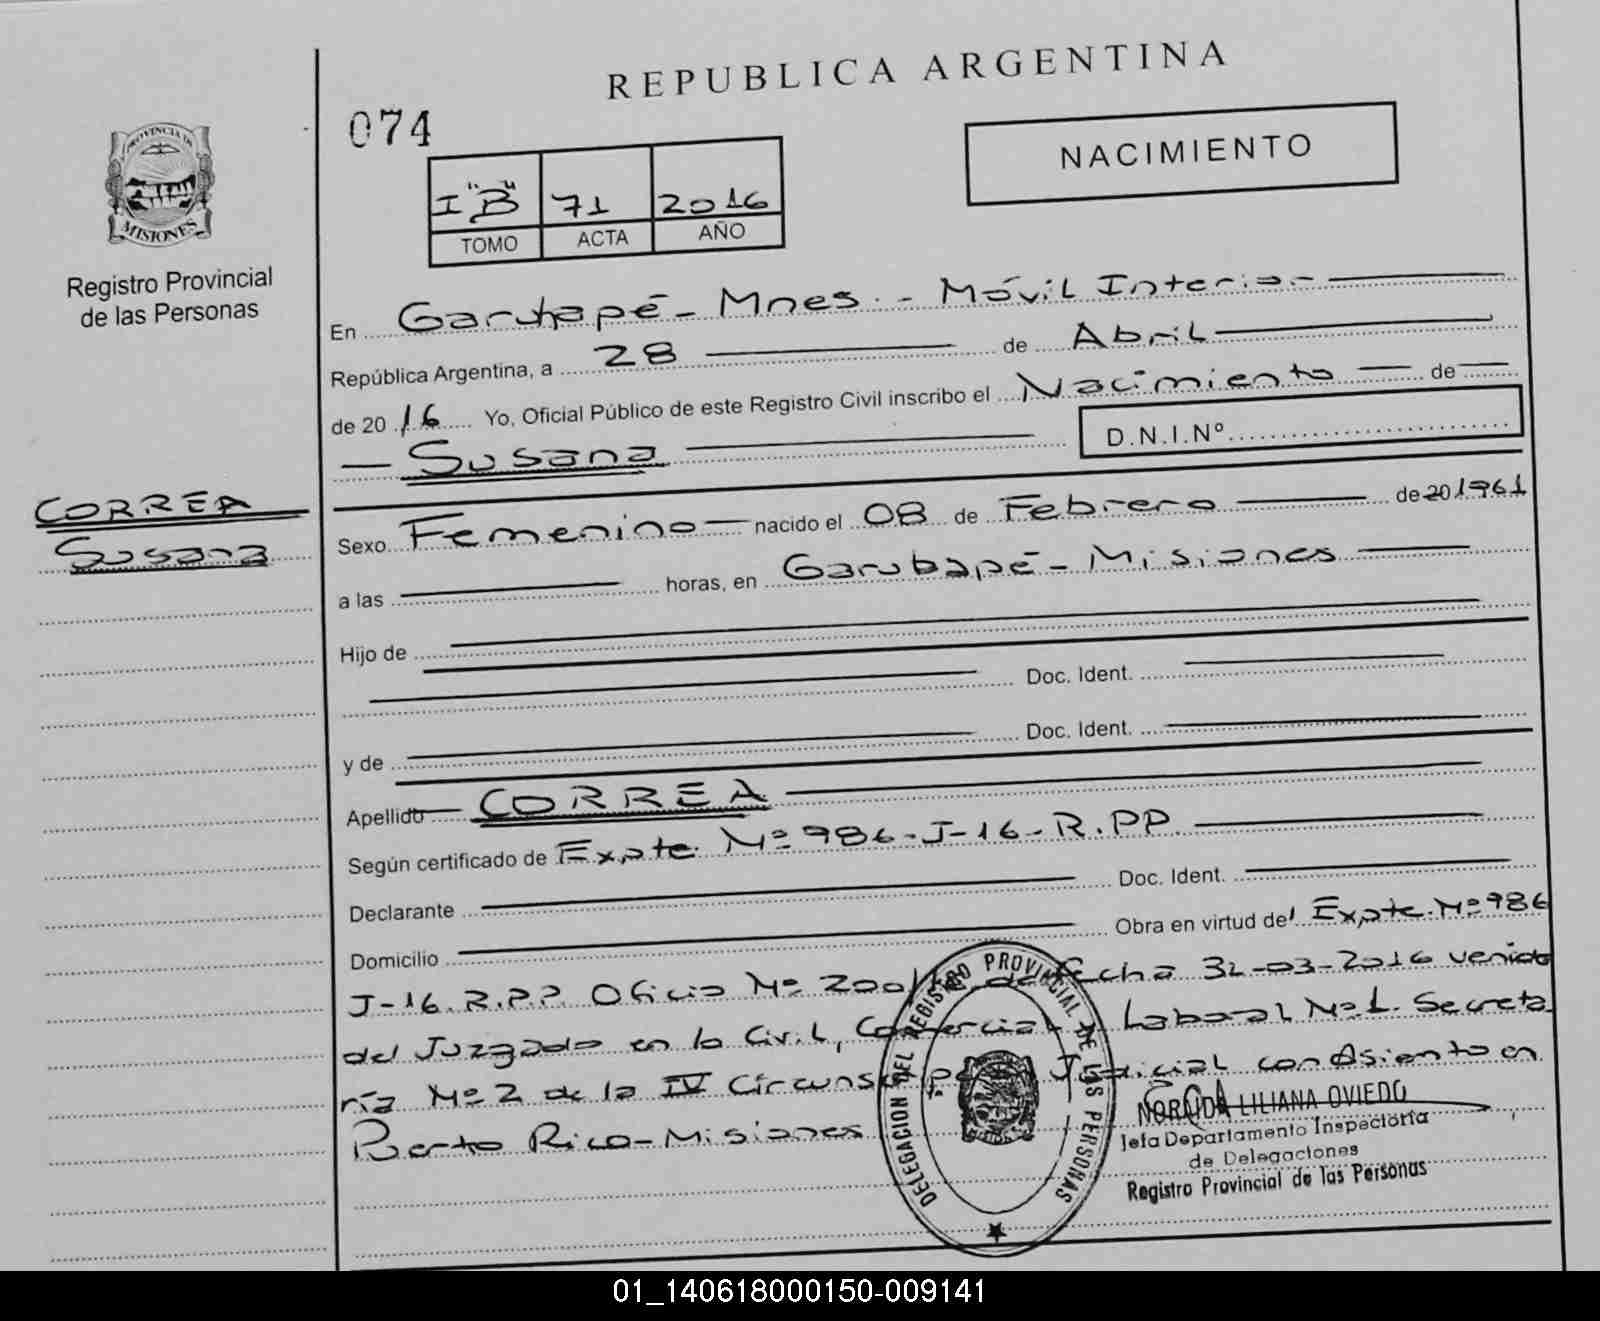 REPUBLICA ARGENTINA
074
NACIMIENTO
PROVINCIA DE
MISIONES
Registro Provincial
de las Personas
I "B" 71 2016
TOMO ACTA AÑO
En Garuhapé - Mnes. - Móvil Interior
República Argentina, a 28 de Abril
de 2016 Yo, Oficial Público de este Registro Civil inscribo el Nacimiento de
Susana
D.N.I.Nº
CORREA
Susana
Sexo Femenino nacido el 08 de Febrero de 20 1961
a las horas, en Garuhapé - Misiones
Hijo de
Doc. Ident.
y de Doc. Ident.
Apellido CORREA
Según certificado de Expte. Nº 986-J-16-R.PP
Declarante Doc. Ident.
Domicilio Obra en virtud del Expte. Nº 986
J-16.R.P.P. Oficio Nº de fecha 31-03-2016 venido
del Juzgado en lo Civil, Comercial y Laboral Nº 1. Secreta
ría Nº 2 de la IV Circunscripción Judicial con Asiento en
Puerto Rico-Misiones
DELEGACION DEL REGISTRO PROVINCIAL DE LAS PERSONAS
LILIANA OVIEDO
Jefa Departamento Inspectoría
de Delegaciones
Registro Provincial de las Personas
01_140618000150-009141